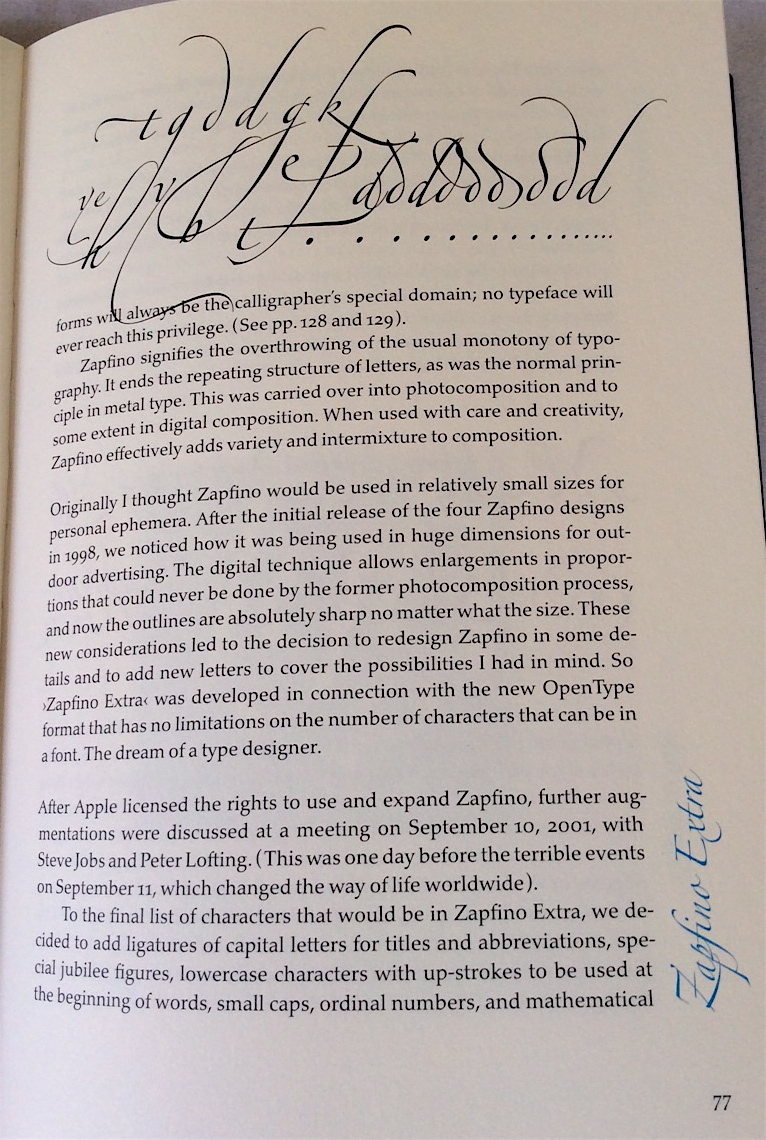 t g d d g k
forms will always be the calligrapher's special domain; no typeface will
ever reach this privilege. (See pp. 128 and 129).
Zapfino signifies the overthrowing of the usual monotony of typo-
graphy. It ends the repeating structure of letters, as was the normal prin-
ciple in metal type. This was carried over into photocomposition and to
some extent in digital composition. When used with care and creativity,
Zapfino effectively adds variety and intermixture to composition.
Originally I thought Zapfino would be used in relatively small sizes for
personal ephemera. After the initial release of the four Zapfino designs
in 1998, we noticed how it was being used in huge dimensions for out-
door advertising. The digital technique allows enlargements in propor-
tions that could never be done by the former photocomposition process,
and now the outlines are absolutely sharp no matter what the size. These
new considerations led to the decision to redesign Zapfino in some de-
tails and to add new letters to cover the possibilities I had in mind. So
›Zapfino Extra‹ was developed in connection with the new OpenType
format that has no limitations on the number of characters that can be in
a font. The dream of a type designer.
After Apple licensed the rights to use and expand Zapfino, further aug-
mentations were discussed at a meeting on September 10, 2001, with
Steve Jobs and Peter Lofting. (This was one day before the terrible events
on September 11, which changed the way of life worldwide).
To the final list of characters that would be in Zapfino Extra, we de-
cided to add ligatures of capital letters for titles and abbreviations, spe-
cial jubilee figures, lowercase characters with up-strokes to be used at
the beginning of words, small caps, ordinal numbers, and mathematical
Zapfino Extra
77